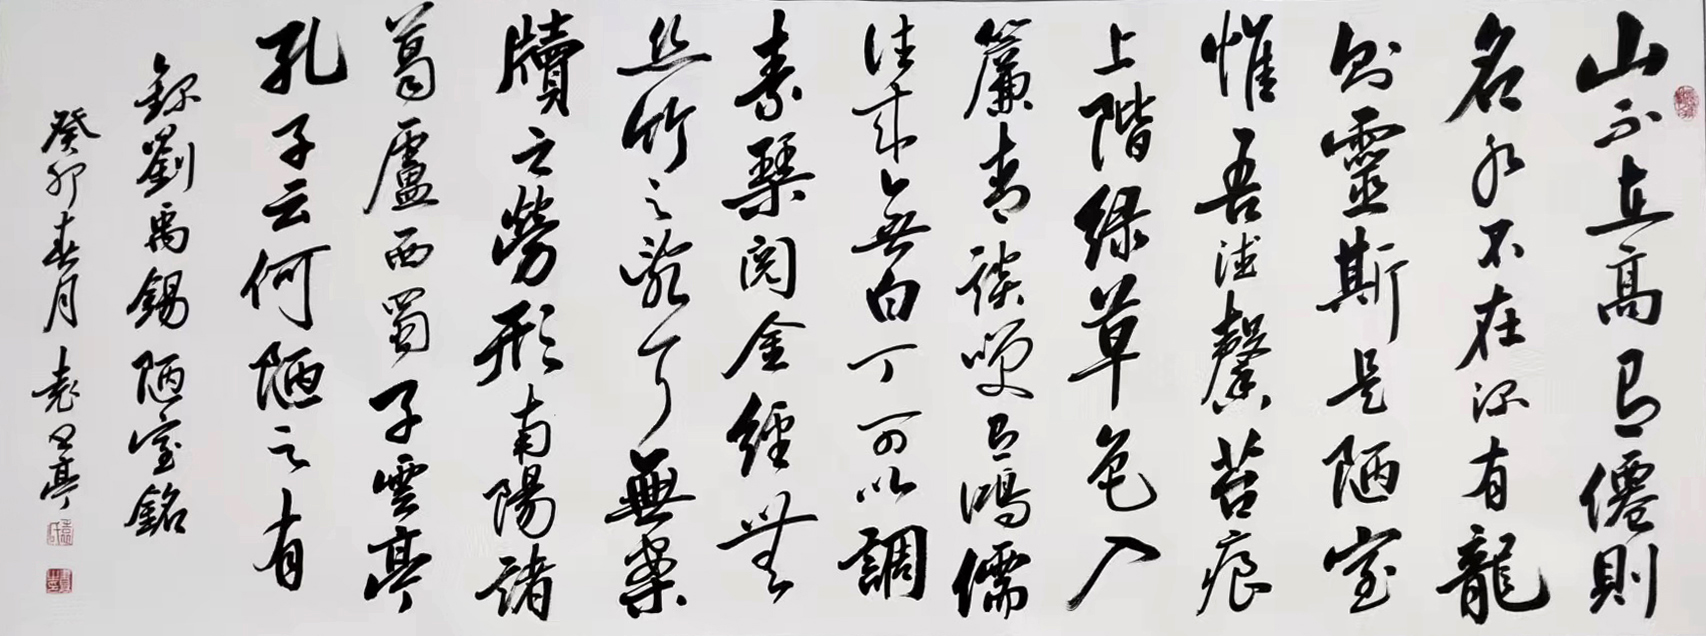 山不在高有僊則
名水不在深有龍
則靈斯是陋室
惟吾德馨苔痕
上階綠草色入
簾青談笑有鴻儒
往來無白丁可以調
素琴閱金經無
丝竹之亂耳無案
牘之勞形南陽諸
葛廬西蜀子雲亭
孔子云何陋之有
錄劉禹錫陋室銘
癸卯春月 亭